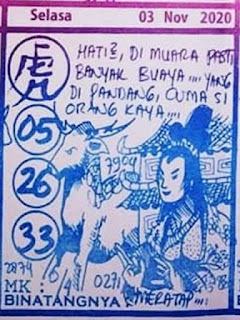 Selasa
03 Nov 2020
HATI2, DI MUARA PASTI
BANYAK BUAYA .... YANG
DI PANDANG, CUMA SI
ORANG KAYA....
05
7904
26
33
2874
0271
MK :
BINATANGNYA
MERATAP...